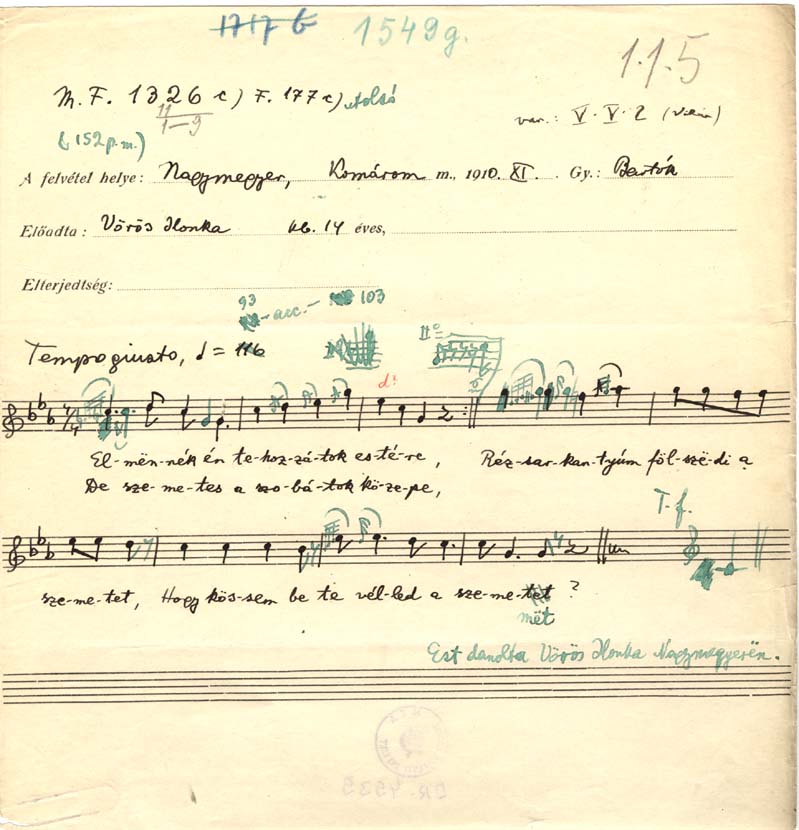 1717 b 1549g.
1.1.5
M. F. 1326 c) F. 177 c) Alsó
11
1—9
var.: V. V. 2
(152 p.m.)
A felvétel helye: Nagymegyer, Komárom m., 1910. XI. Gy.: Bartók
Előadta: Vörös Ilonka kb. 14 éves,
Elterjedtség:
93 -acc.- 103
Tempo giusto, = 116
II°=
d?
El-mën-nék én te-hoz-zá-tok es-té-re, Réz-sar-kan-tyúm föl-szë-di a
De sze-me-tes a szo-bá-tok kö-ze-pe,
T. f.
sze-me-tet, Hogy kös-sem be te vél-led a sze-me-tet?
mët
Ezt danolta Vörös Ilonka Nagymegyerën.
BR. 4535